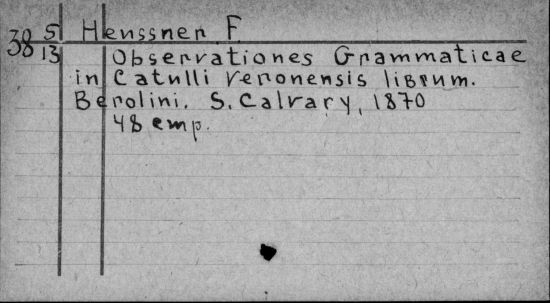 38 5 Heussner F
38 13 Observationes Grammaticae
in Catulli veronensis librum.
Berolini. S. Calvary, 1870
48 стр.